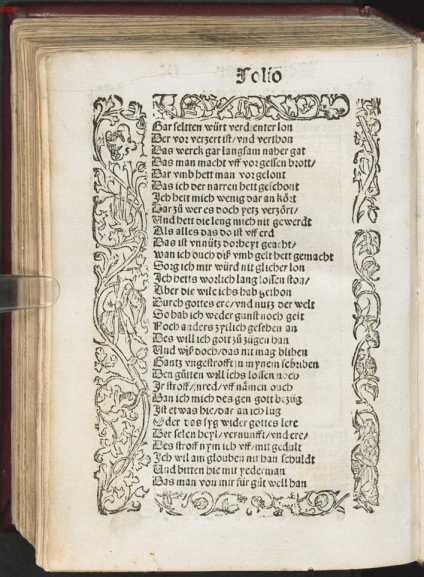 Folio
Gar seltten würt verdienter lon
Der vor verzert ist/ vnd verthon
Das werck gar langsam naher gat
Das man macht vff vorgessen brott/
Dar vmb hett man vor gelont
Das ich der narren hett geschont
Ich hett mich wenig dar an kört
Dar zů wer es doch yetz verzört/
Vnd hett die leng mich nit gewerdt
Als alles das do ist vff erd
Das ist vnnütz dorheyt geacht/
wan ich ouch diß vmb gelt hett gemacht
Sorg ich mir würd nit glicher lon
Ich hetts worlich lang lossen ston/
Aber die wile ichs hab gethon
Durch gottes ere/ vnd nutz der welt
So hab ich weder gunst noch gelt
Noch anders zytlich gesehen an
Des will ich gott zů zügen han
Vnd wiß doch/ das nit mag bliben
Gantz vngestrofft in mynem schriben
Den gůten will ichs lossen noch
Ir stroff/ inred/ vff nämen ouch
Dan ich mich des gen gott bezüg
Ist etwas hie/ dar an ich lüg
Oder das syg wider gottes lere
Der selen heyl/ vernunfft/ vnd ere/
Des stroff nym ich vff/ mit gedult
Ich wil am glouben nit han schuldt
Vnd bitten hie mit yederman
Das man von mir für gůt well han